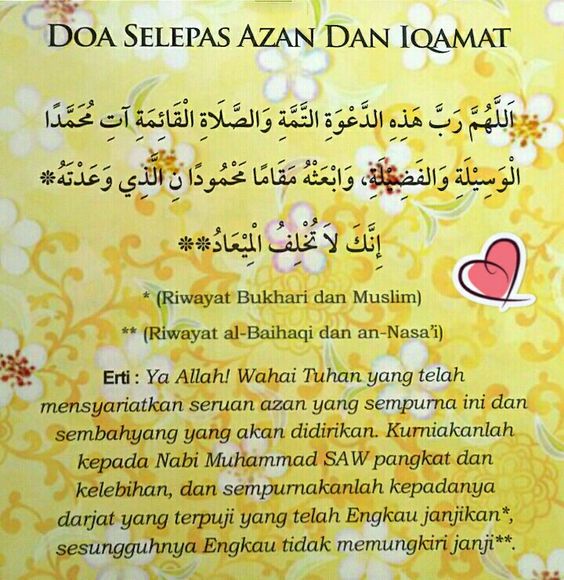 DOA SELEPAS AZAN DAN IQAMAT
اَللَّهُمَّ رَبَّ هَذِهِ الدَّعْوَةِ التَّمَّةِ وَالصَّلَاةِ الْقَائِمَةِ آتِ مُحَمَّدًا
الْوَسِيْلَةِ وَالفَضِيْلَةِ، وَابْعَثْهُ مَقَامًا مَحْمُودًا نِ الَّذِي وَعَدْتَهُ*
إِنَّكَ لاَ تُخْلِفُ الْمِيْعَادُ**
* (Riwayat Bukhari dan Muslim)
** (Riwayat al-Baihaqi dan an-Nasa'i)
Erti : Ya Allah! Wahai Tuhan yang telah
mensyariatkan seruan azan yang sempurna ini dan
sembahyang yang akan didirikan. Kurniakanlah
kepada Nabi Muhammad SAW pangkat dan
kelebihan, dan sempurnakanlah kepadanya
darjat yang terpuji yang telah Engkau janjikan*,
sesungguhnya Engkau tidak memungkiri janji**.